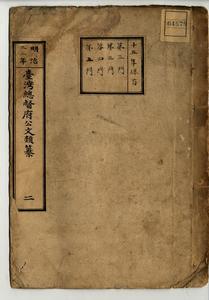 明治
二八年
臺灣總督府公文類纂
二
十五年保存
第二門
第三門
第四門
第五門